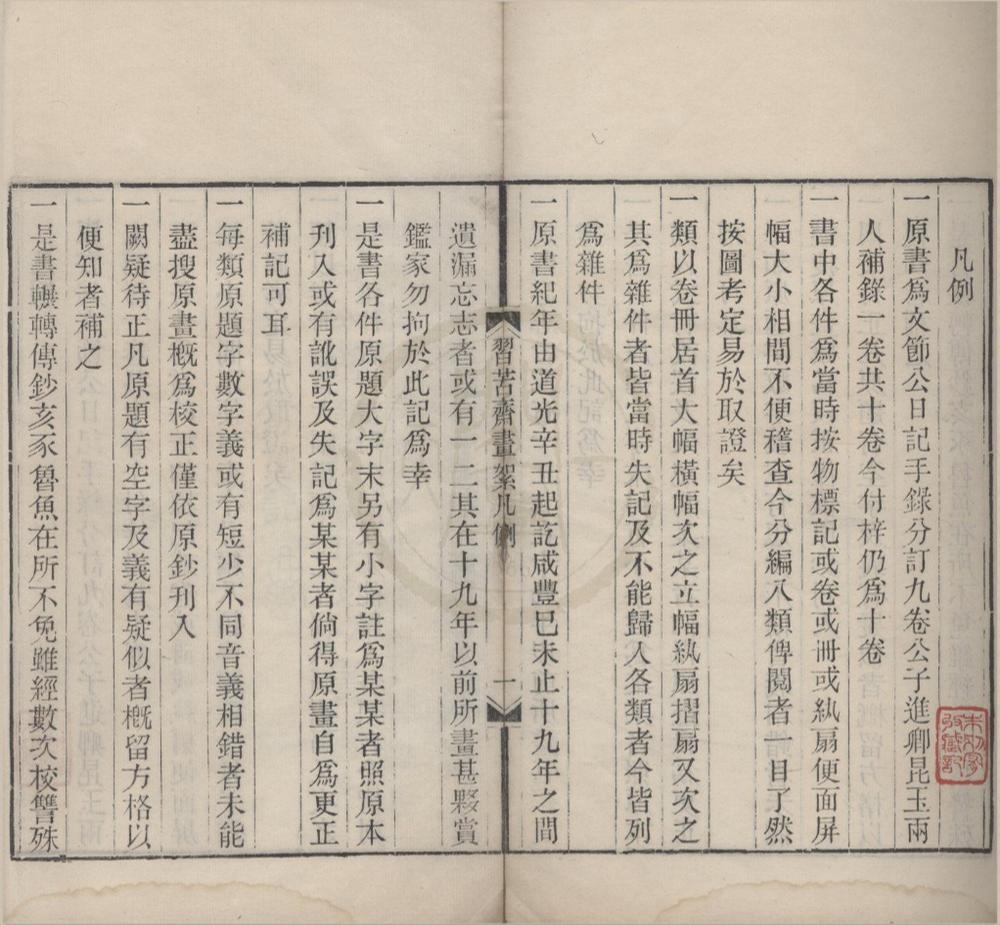 凡例
一原書爲文節公日記手錄分訂九卷公子進卿昆玉兩
人補錄一卷共十卷今付梓仍爲十卷
一書中各件爲當時按物標記或卷或冊或紈扇便面屏
幅大小相間不便稽查今分編八類俾閱者一目了然
按圖考定易於取證矣
一類以卷冊居首大幅橫幅次之立幅紈扇摺扇又次之
其爲雜件者皆當時失記及不能歸入各類者今皆列
爲雜件
一原書紀年由道光辛丑起訖咸豐巳未止十九年之間
習苦齋畫絮凡例
一
遺漏忘志者或有一二其在十九年以前所畫甚夥賞
鑑家勿拘於此記爲幸
一是書各件原題大字末另有小字註爲某某者照原本
刊入或有訛誤及失記爲某某者倘得原畫自爲更正
補記可耳
一每類原題字數字義或有短少不同音義相錯者未能
盡搜原畫概爲校正僅依原鈔刊入
一闕疑待正凡原題有空字及義有疑似者概留方格以
便知者補之
一是書輾轉傳鈔亥豕魯魚在所不免雖經數次校讐殊